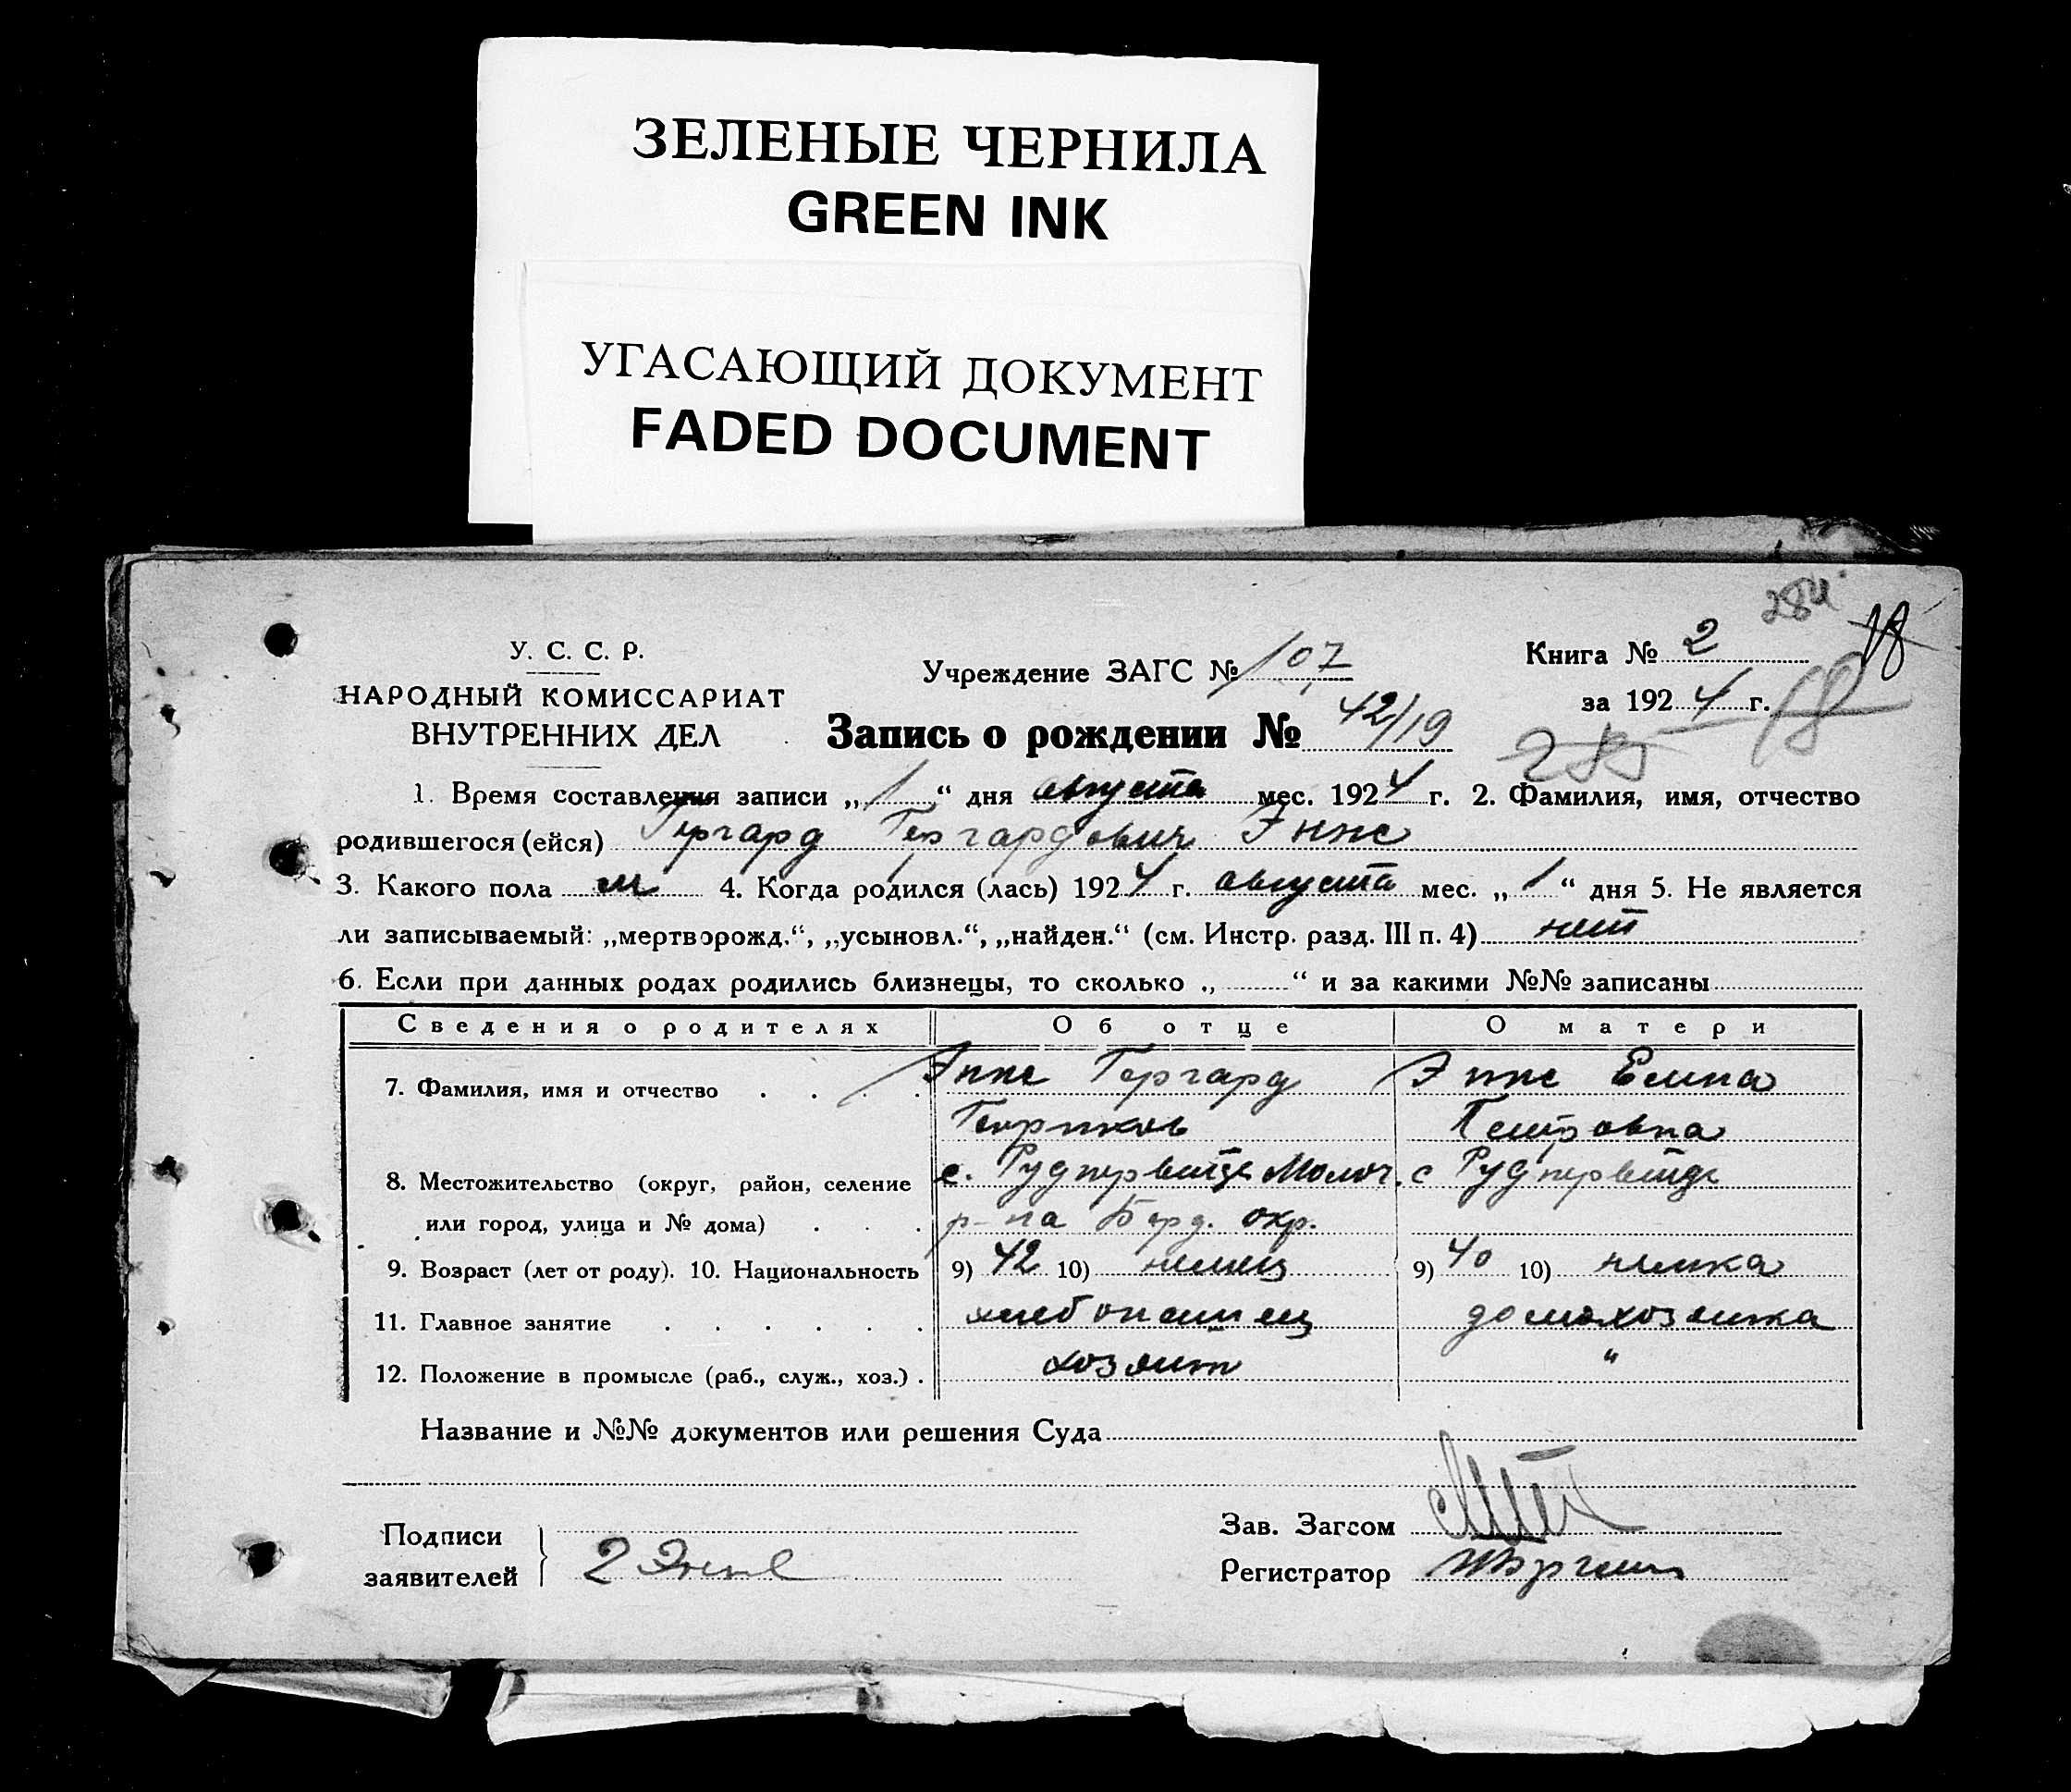 ЗЕЛЕНЫЕ ЧЕРНИЛА
GREEN INK
УГАСАЮЩИЙ ДОКУМЕНТ
FADED DOCUMENT
284
18
У. С. С. Р.
НАРОДНЫЙ КОМИССАРИАТ
ВНУТРЕННИХ ДЕЛ
Учреждение ЗАГС № 107
Книга № 2
за 1924 г.
18
Запись о рождении № 42/19
1. Время составления записи „1“ дня августа мес. 1924 г. 2. Фамилия, имя, отчество
родившегося (ейся) Гергард Гергардович Эннс
3. Какого пола м 4. Когда родился (лась) 1924 г. августа мес. „1“ дня 5. Не является
ли записываемый: „мертворожд.“, „усыновл.“, „найден.“ (см. Инстр. разд. III п. 4) нет
6. Если при данных родах родились близнецы, то сколько „ “ и за какими №№ записаны
Сведения о родителях Об отце О матери
7. Фамилия, имя и отчество Эннс Гергард Эннс Елена
Петровна
8. Местожительство (округ, район, селение с. Руднервейде Молоч. с Руднервейде
или город, улица и № дома) р-на Берд. окр.
9. Возраст (лет от роду). 10. Национальность 9) 42 10) немец 9) 40 10) немка
11. Главное занятие хлебопашец домохозяйка
12. Положение в промысле (раб., служ., хоз.) хозяин "
Название и №№ документов или решения Суда
Подписи
заявителей Эннс
Зав. Загсом
Регистратор